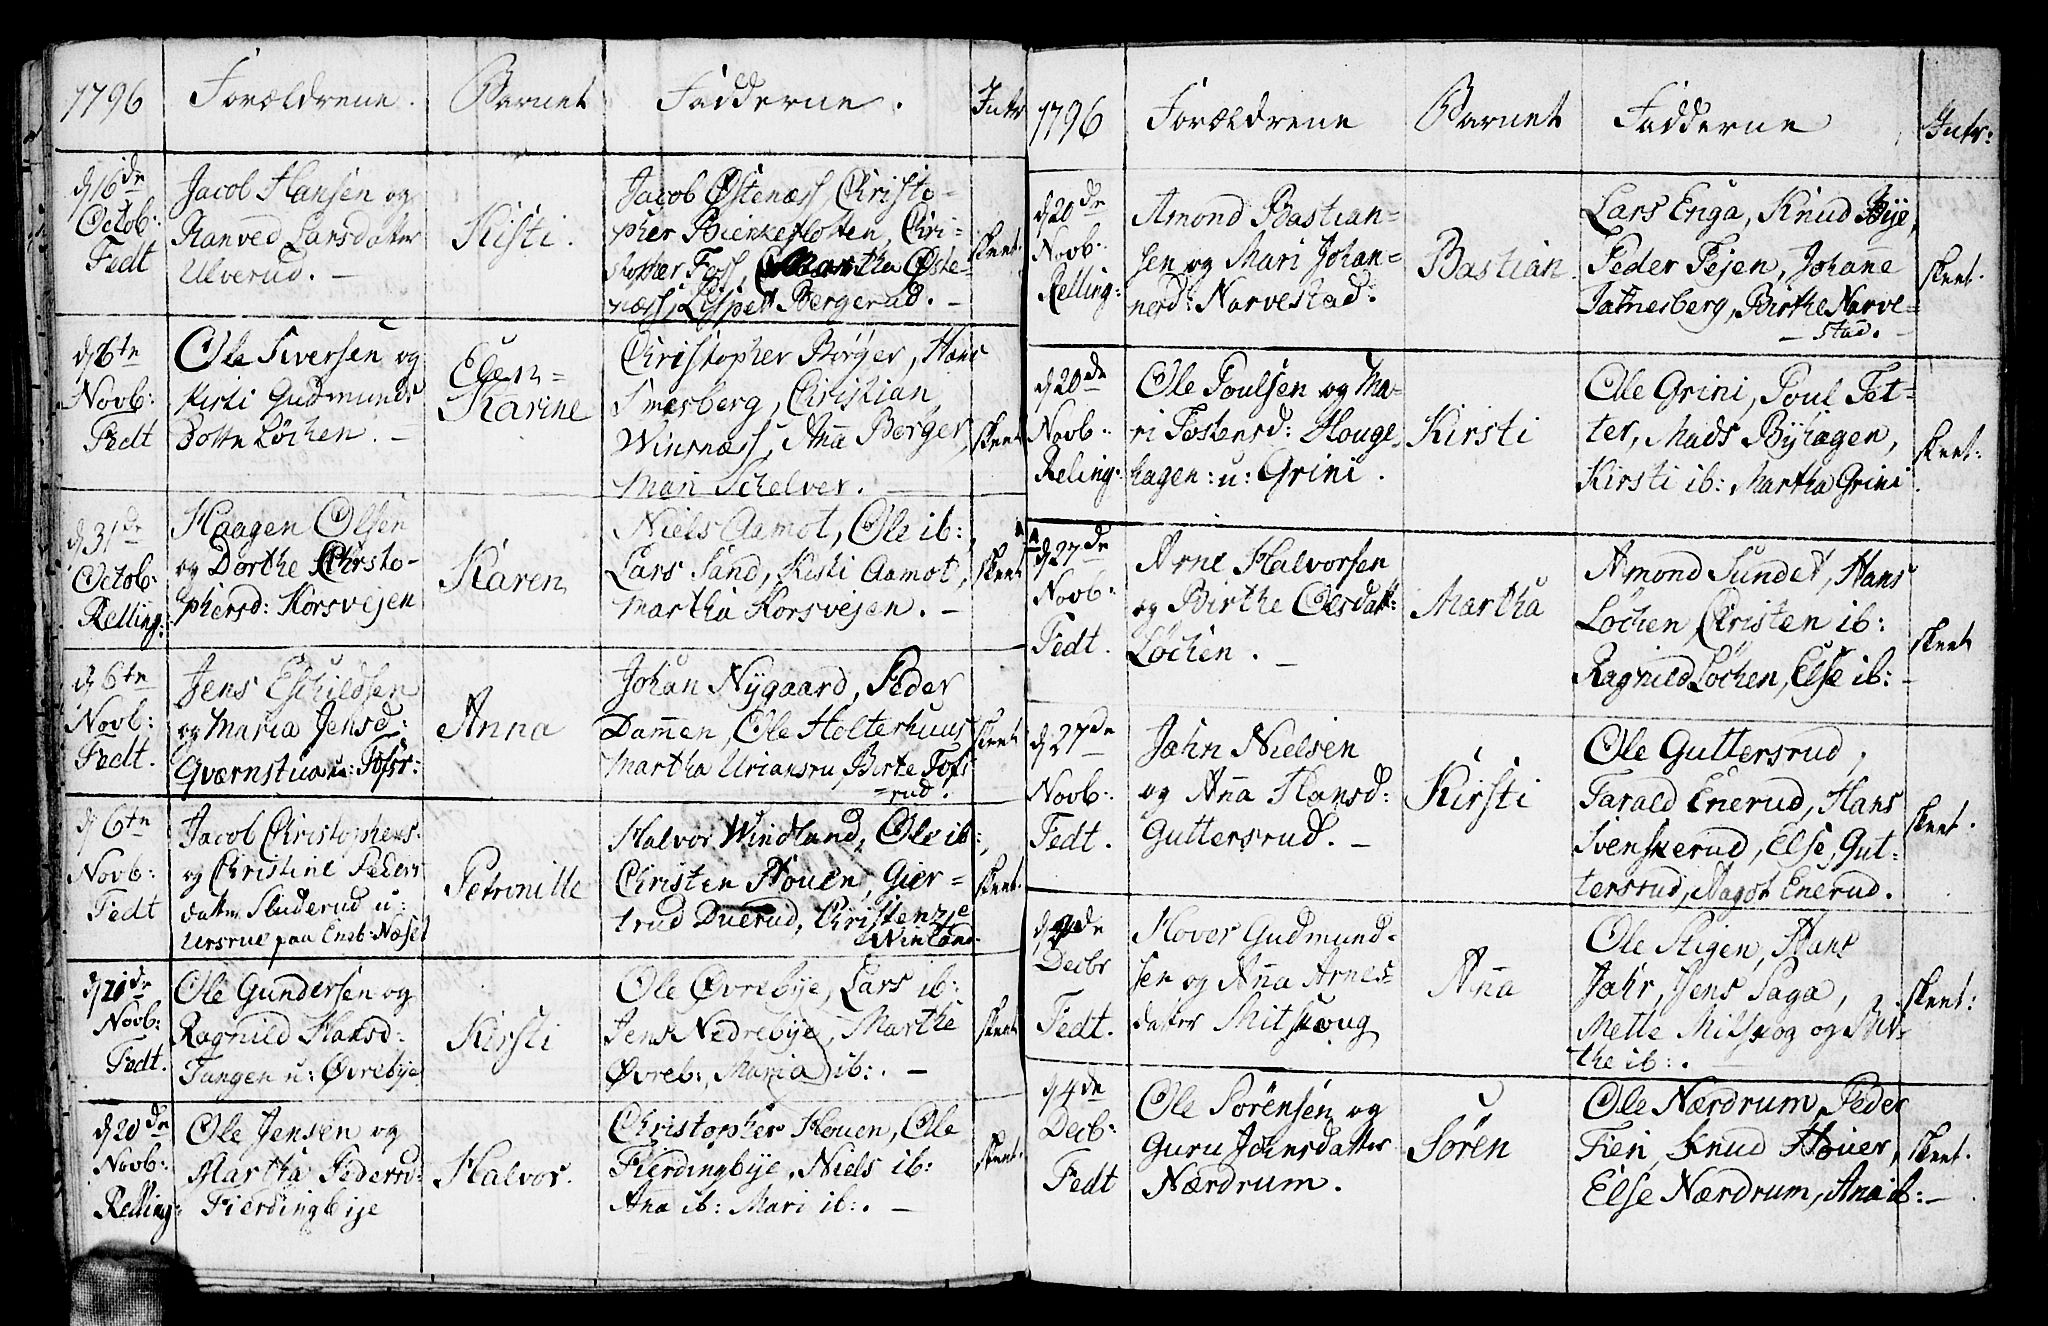 1796 Forældrene. Barnet Fadderne. Intr
d 16de Octob: Fedt
Jacob Hansen og
Ranved Larsdatter
Ulverud. –
Kisti.
Jacob Østenæss Christo-
pher Bienkeslotten, Chri-
stopher Foss, Martha Øste-
næss, Lispett Bergerud. –
skeet.
d 6te Novb: Fedt
Ole Siversen og
Kirsti Gudmunds
Dotte Løchen. –
Elen-
Karine
Christopher Børger, Hans
Smerberg, Christian
Winsnæss, Aña Børger
Mari Schelver. –
skeet
d 31de Octob: Relling:
Haagen Olsen
og Dorthe Christo-
phersd: Korsvejen
Karen
Niels Aamot, Ole ib:,
Lars Sand, Kisti Aamot,
Martha Korsvejen. –
skeet
d 6te Novb: Fedt.
Jens Eschildsen
og Maria Jensd:
Qværnstua u: Fossr:
Anna
Johan Nygaard, Peder
Dam̄en, Ole Holterhuus
Martha Uriansru Birte Foss
=rud.
skeet
d 6te Novb: Fedt
Jacob Christophers:
og Christine Peders
datter Sluderud u:
Ursrue paa Eneb: Næset
Petronille
Halvor Windland, Ole ib:,
Christen Houen, Gier-
trud Duerud, Christenzje
Winland.
skeet.
d 20de Novb: Fedt.
Ole Gundersen og
Ragnild Hansd:
Tangen u: Øvrebye
Kirsti
Ole Øvrebye, Lars ib:
Jens Nedrebye, Marthe
Øvreb:, Maria ib:. –
skeet
d 20de Novb: Relling:
Ole Jensen og
Martha Pedersd:
Fierdingbye
Halvor.
Christopher Houen, Ole
Fierdingbye, Niels ib:
Ana ib: Mari ib:. –
skeet.
1796 Forældrene Barnet Fadderne Intr:
d 20de Novb: Relling:
Amond Bastian-
sen og Mari Johan-
nesd: Narvestad.
Bastian
Lars Enga, Knud Bye,
Peder Fejen, Johañe
Tatnesberg, Birthe Narve-
– stad. –
skeet.
d 20de Novb: Reling:
Ole Poulsen og Ma-
ri Tostensd: Houge,
hagen: u: Grini.
Kirsti
Ole Grini, Poul Tet-
ter, Mads Byhagen,
Kirsti ib: Martha Grini.
skeet:
d 27de Novb: Fedt.
Arne Halvorsen
og Birthe Olsdatt:
Løchen. –
Martha
Amond Sundet, Hans
Løchen, Christen ib:
Ragnild Løchen, Else ib: –
skeet
d 27de Novb: Fedt.
Jahn Nielsen
og Aña Hansd:
Guttersrud. –
Kirsti
Ole Guttersrud,
Tarald Enerud, Hans
Svenskerud, Else Gut-
tersrud, Magot Enerud.
skeet.
de Decbr Fedt.
Hover Gudmund-
sen og Aña Arnes-
datter Mitskoug
Aña
Ole Stigen, Hans
Jahr, Jens Saga,
Mette Mitskog og Bir-
the ib:. –
skeet:
d 4de Decb: Fedt
Ole Sørensen og
Guru Johnsdatter
Nærdrum.
Søren
Ole Nærdrum, Peder
Fieri, Knud Houer,
Else Nærdrum, Ana ib: –
skeet.